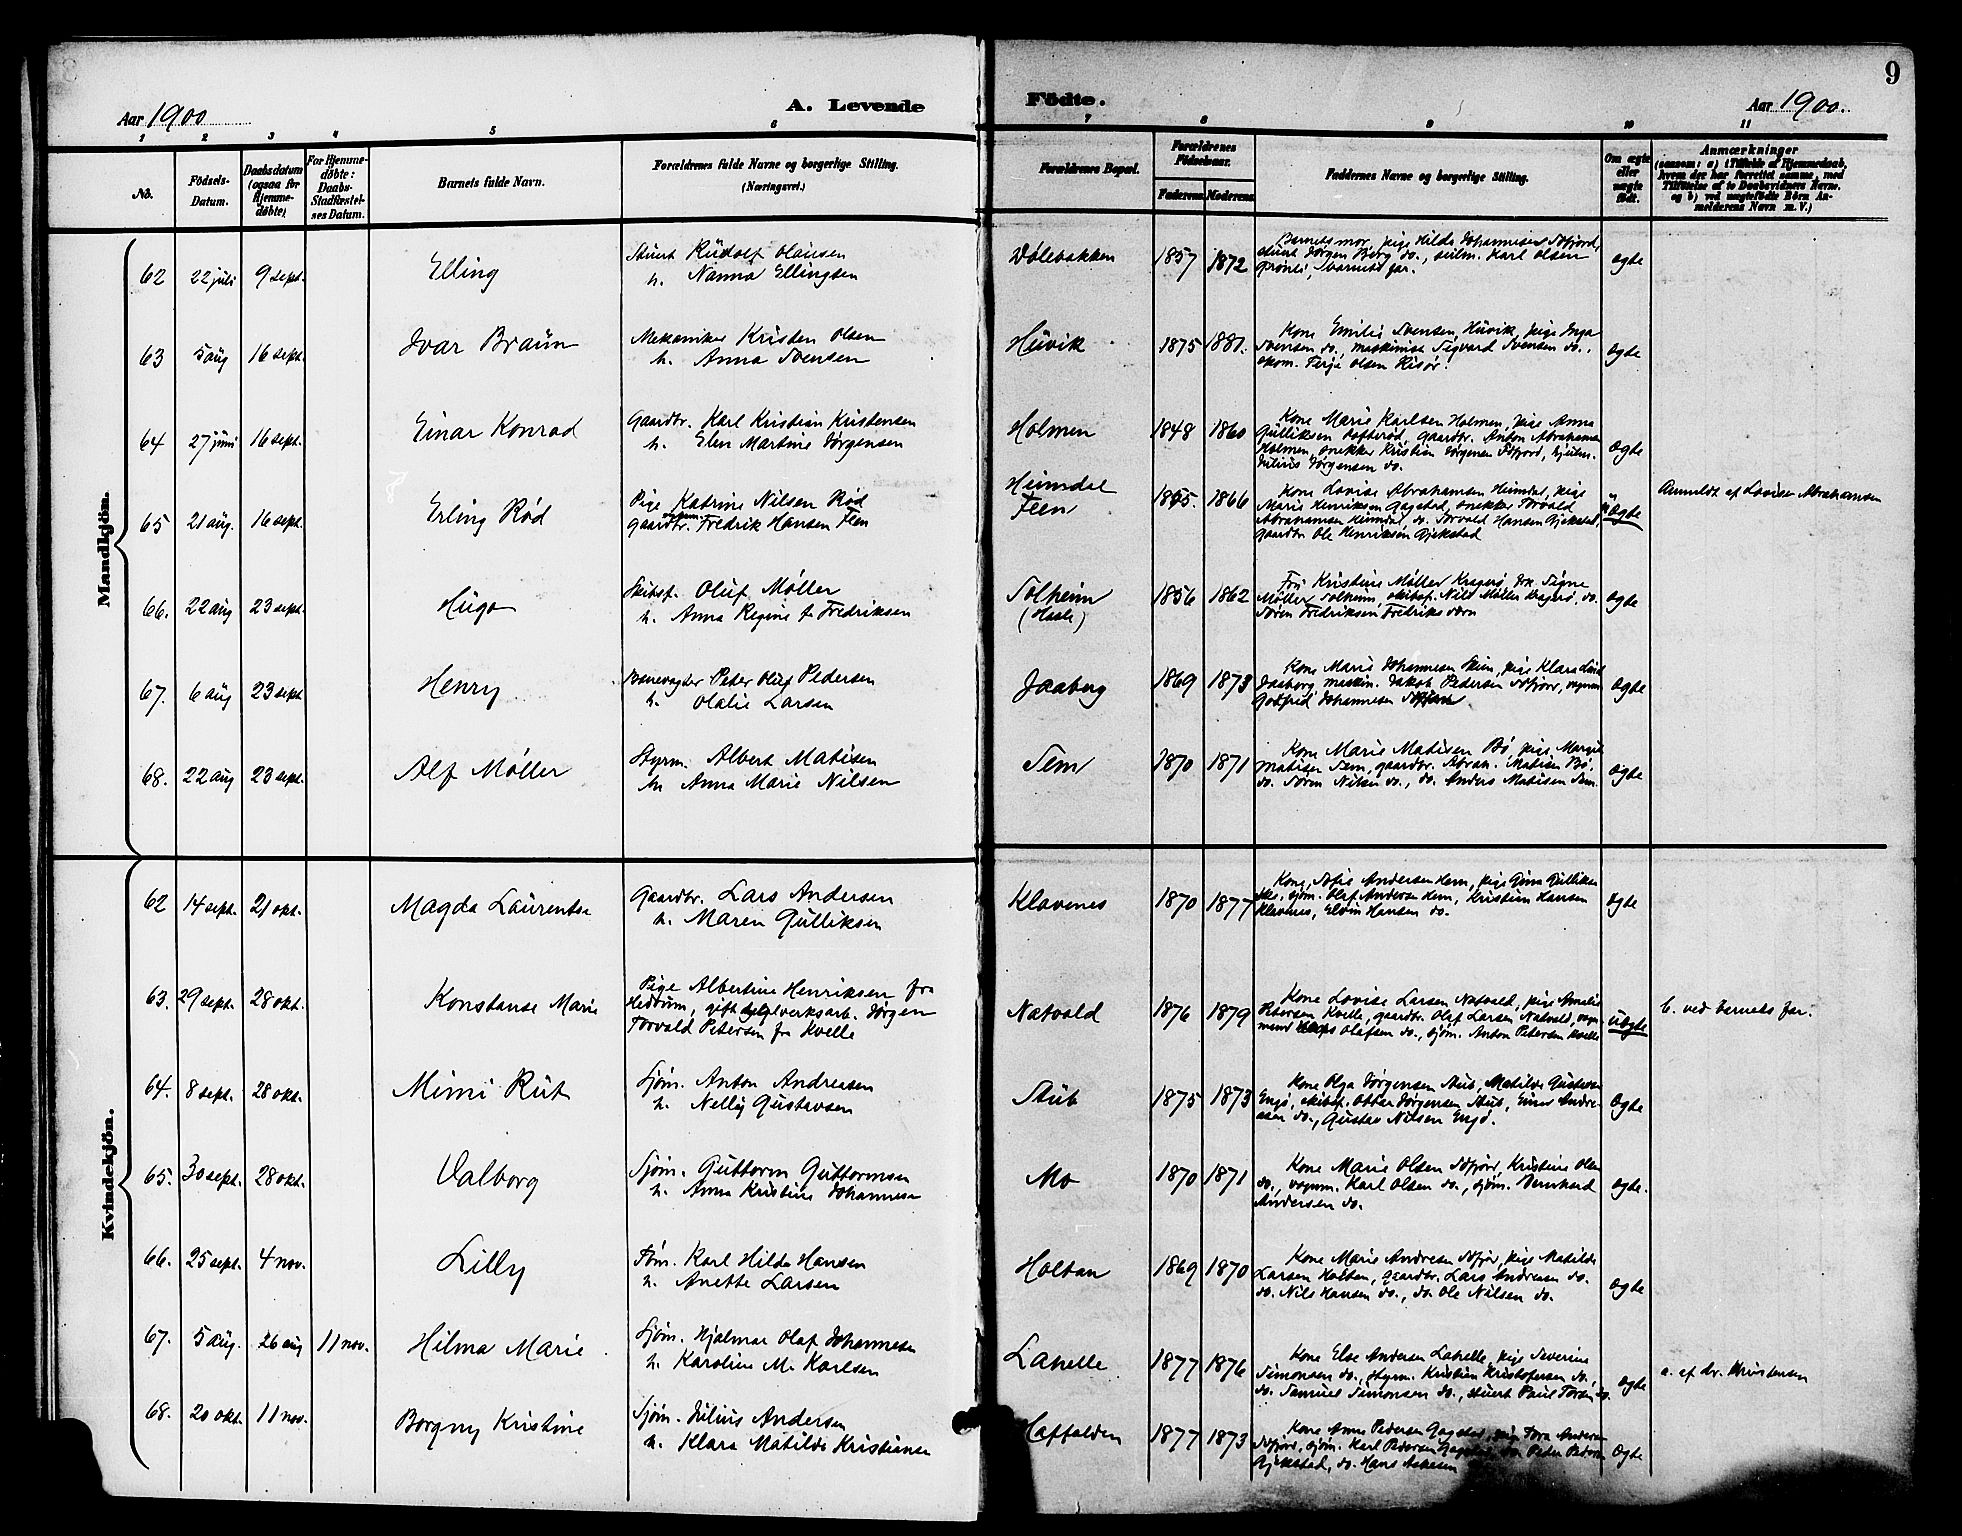 9
Aar 1900
A. Levende
Födte.
Aar 1900.
1 2 3 4 5 6 7 8 9 10 11
No.
Födsels-Datum.
Daabsdatum (ogsaa for Hjemme-döbte)
For Hjemme-döbte: Daabs-Stadfæstel-ses Datum.
Barnets fulde Navn.
Forældrenes fulde Navne og borgerlige Stilling.
(Næringsvei.)
Forældrenes Bopæl.
Forældrenes Födselsaar.
Faderens. Moderens.
Faddernes Navne og borgerlige Stilling.
Om ægte eller uægte födt.
Anmærkninger
(saasom: a) i Tilfælde af Hjemmedaab,
hvem der har forrettet samme, med
Tilföielse af to Daabsvidners Navne.
og b) ved uægtefödte Börn An-
melderens Navn m. V.)
Mandkjön.
62 22 juli 9 sept. Elling
Stuert Rudolf Olausen
h. Nanna Ellingsen
Dølebakken 1857 1872
Barnets mor, pige Hilda Johannisen Sdfjord,
stuert Jørgen Berg do., seilm. Karl Olsen
Grønli, barnets far.
ægte
63 5 aug 16 sept. Ivar Braun
Mekaniker Kristen Olsen
h. Anna Svensen
Huvik 1875 1881.
Kone Emilie Svensen Huvik, pige Inga
Svensen do., maskinist Sigvard Svensen do.,
ekom. Terje Olsen Risør.
ægte
64 27 juni 16 sept. Einar Konrad
Gaardbr. Karl Kristian Kristensen
h. Elen Martine Jørgensen
Holmen 1848 1860
Kone Marie Karlsen Holmen, pige Anna
Gulliksen Tofterød, gaardbr. Anton Abrahamsen
Holmen, snekker Kristian Jørgensen Sdfjord, hjulm.
Julius Jørgensen do.
ægte
65 21 aug. 16 sept. Erling Rød
Pige Katrine Nilsen Rød
gaardbr. Fredrik Hansen Feen
Heimdal
Feen 1865. 1866
Kone Lovise Abrahamsen Heimdal, pige
Marie Henriksen Gogstad, snekker Torvald
Abrahamsen Heimdal, do. Torvald Hansen Gjekstad,
gaardbr Ole Henriksen Gjekstad
uægte
Anmeldt af Lovise Abrahamsen
66. 22 aug 23 sept. Hugo
Skibsf. Oluf Møller
h. Anna Regine f. Fredriksen
Solheim
(Hasle) 1856 1862
Fru Kristine Møller Kragerø, frk. Signe
Møller Solheim, skibsf. Nils Møller Kragerø, do.
Søren Fredriksen Fredriksværn
ægte
67. 6 aug 23 sept Henry
Banevogter Peter Oluf Pedersen
h. Olalie Larsen
Jaaberg 1869 1873
Kone Marie Johannesen Skin, pige Klara Lind
Jaaberg, maskin. Jakob Pedersen Sdfjord, vognm
Godfred Johannesen
ægte
68. 22 aug 23 sept. Alf Møller
Styrm. Albert Matisen
h. Anna Marie Nilsen
Sem 1870 1871
Kone Marie Matisen Bø, pige Margit
Matisen Sem, gaardbr. Abrah. Matisen Bø.
do. Søren Nilsen do., do. Anders Matisen Sem.
ægte
Kvindekjön.
62 14 sept. 21 okt. Magda Laurentse
Gaardbr. Lars Andersen
h. Maren Gulliksen
Klavenes 1870 1877
Kone Sofie Andersen Hem, pige Gina Gulliksen
sjøm. Olaf Andersen Hem, Kristian Hansen
Klavenes, Edvin Hansen do.
ægte
63. 29 sept. 28 okt. Konstanse Marie
Pige Albertine Henriksen fra
Hedrum, gift teglverksarb. Jørgen
Torvald Petersen fr Kvelle
Natvald 1876 1879
Kone Lovise Larsen Natvald, pige Amalie
Petersen Kvelle, gaardbr. Olaf Larsen Natvald, vogn-
mand Olafsen do., sjøm. Anton Petersen Kvelle
uægte
b. ved barnets far.
64. 8 sept. 28 okt. Mimi Rut
Sjøm. Anton Andreasen
h. Nelly Gustavsen
Stub 1875 1873
Kone Olga Jørgensen Stub, Matilde Gustavsen
Engø, skibsf. Ottar Jørgensen Stub, Einar Andre-
asen do., Gustav Nilsen Engø.
ægte
65. 30 sept. 28 okt. Valborg
Sjøm. Guttorm Guttormsen
h. Anna Kristine Johannesen
Mo 1870 1871
Kone Marie Olsen Sdfjord, Kristine Olsen
do., vognm. Karl Olsen do., sjøm. Bernhard
Andersen do.
ægte.
66. 25 sept. 4 nov. Lilly
Tøm. Karl Hilda Hansen
h. Anette Larsen
Holtan 1869 1870
Kone Marie Andresen Sdfjor, pige Matilde
Larsen Holtan, gaardbr. Lars Andresen do.
do. Nils Hansen do., do. Ole Nilsen do.
ægte
67. 5 aug. 26 aug 11 nov. Hilma Marie
Sjøm. Hjalmar Olaf Johannesen
h. Karoline M. Karlsen
Lahelle 1877 1876
Kone Else Andersen Lahelle, pige Severine
Simonsen do., styrm. Kristian Kristofersen do.,
do. Samuel Simonsen do., stuert Paul Torsen do.
ægte
a. af dr. Kristensen
68. 20 okt. 11 nov. Borgny Kristine
Sjøm. Julius Andersen
h. Klara Matilde Kristiansen
Haffalden 1877 1873
Kone Anne Pedersen Gogstad, pige Tora Andersen
Sdfjord, sjøm. Karl Pedersen Gogstad, do. Peder Pedersen
Gjekstad, do. Hans
ægte